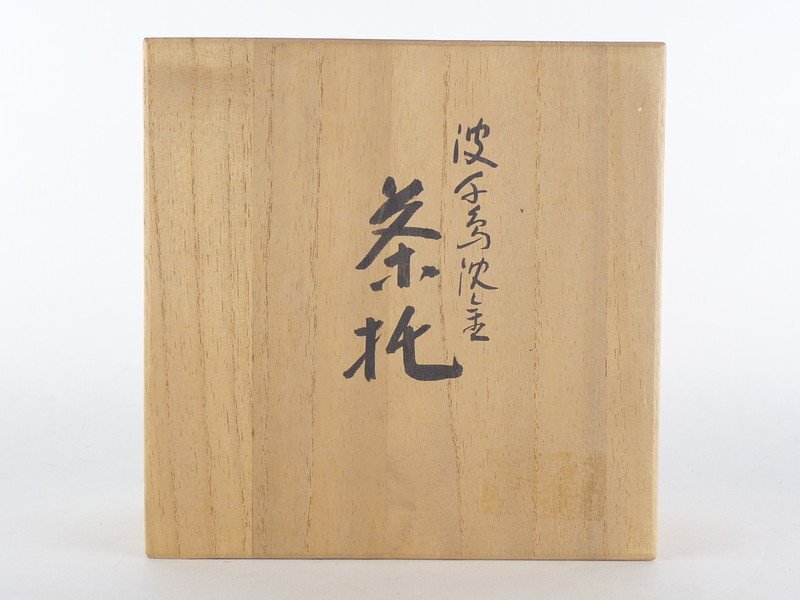 波千鳥沈金
茶托